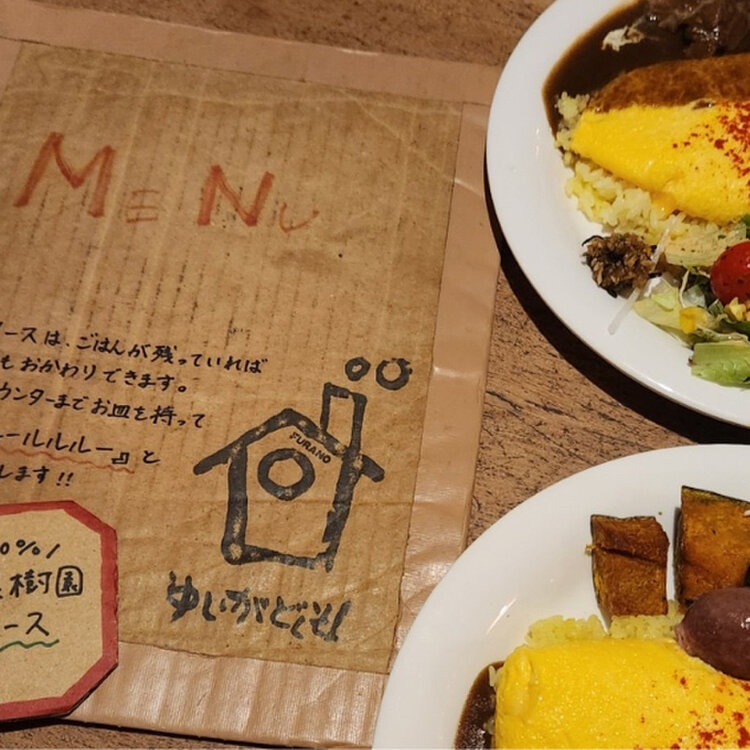 MENU
ースは、ごはんが残っていれば
もおかわりできます。
ウンターまでお皿を持って
ールルルー』と
します!!
FURANO
ゆいがどくそん
0%!
樹園
ース